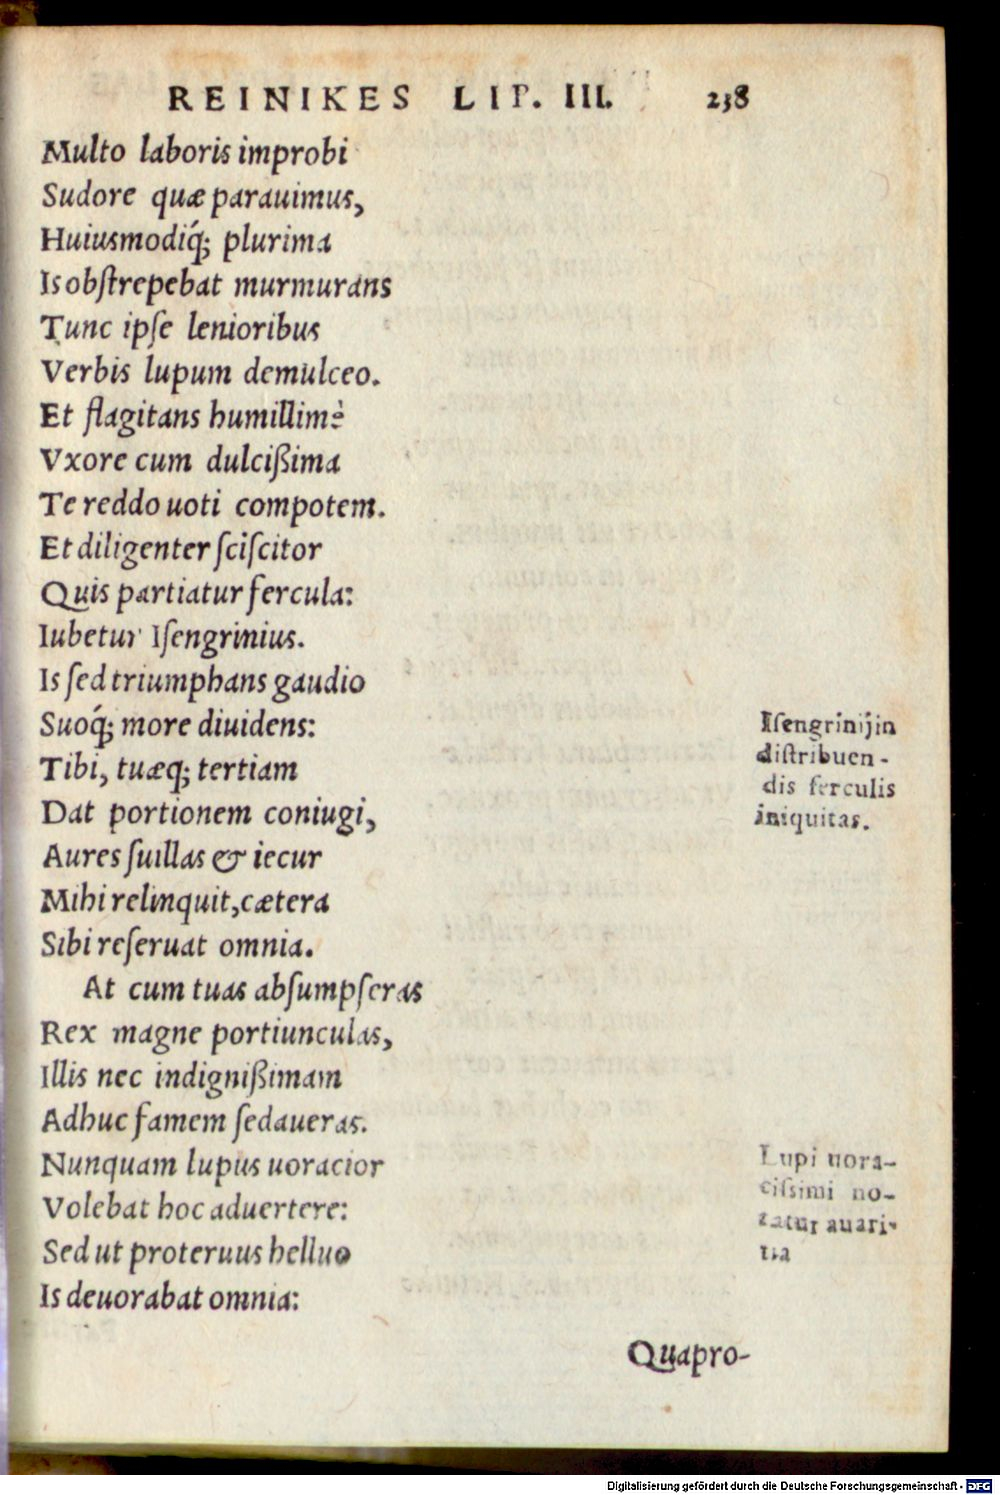 REINIKES LIP. III. 238
Multo laboris improbi
Sudore quæ parauimus,
Huiusmodiq́; plurima
Is obſtrepebat murmurans
Tunc ipſe lenioribus
Verbis lupum demulceo.
Et flagitans humillimè
Vxore cum dulcißima
Te reddo uoti compotem.
Et diligenter ſciſcitor
Quis partiatur fercula:
Iubetur Iſengrinius.
Is ſed triumphans gaudio
Suoq́; more diuidens:
Tibi, tuæq; tertiam
Dat portionem coniugi,
Aures ſuillas & iecur
Mihi relinquit, cætera
Sibi reſeruat omnia.
At cum tuas abſumpſeras
Rex magne portiunculas,
Illis nec indignißimam
Adhuc famem ſedaueras.
Nunquam lupus uoracior
Volebat hoc aduertere:
Sed ut proteruus helluo
Is deuorabat omnia:
Iſengrinij in
diſtribuen-
dis ferculis
iniquitas.
Lupi uora-
ciſsimi no-
tatur auari-
tia
Quapro-
Digitalisierung gefördert durch die Deutsche Forschungsgemeinschaft - DFG